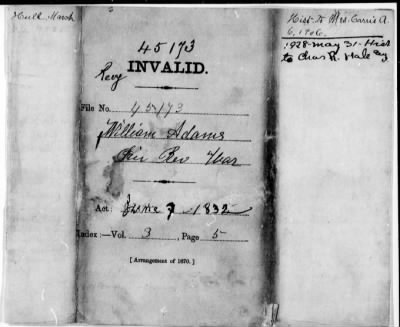 Hull, Mark
45173
Revy
INVALID.
File No. 45173
William Adams
Rev War
Act: June 7 1832
Index:—Vol. 3, Page 5
[Arrangement of 1870.]
Hist. to Mrs. Carrie A.
6, 1906.
1928-May 31-Hist
to Chas R. Hale